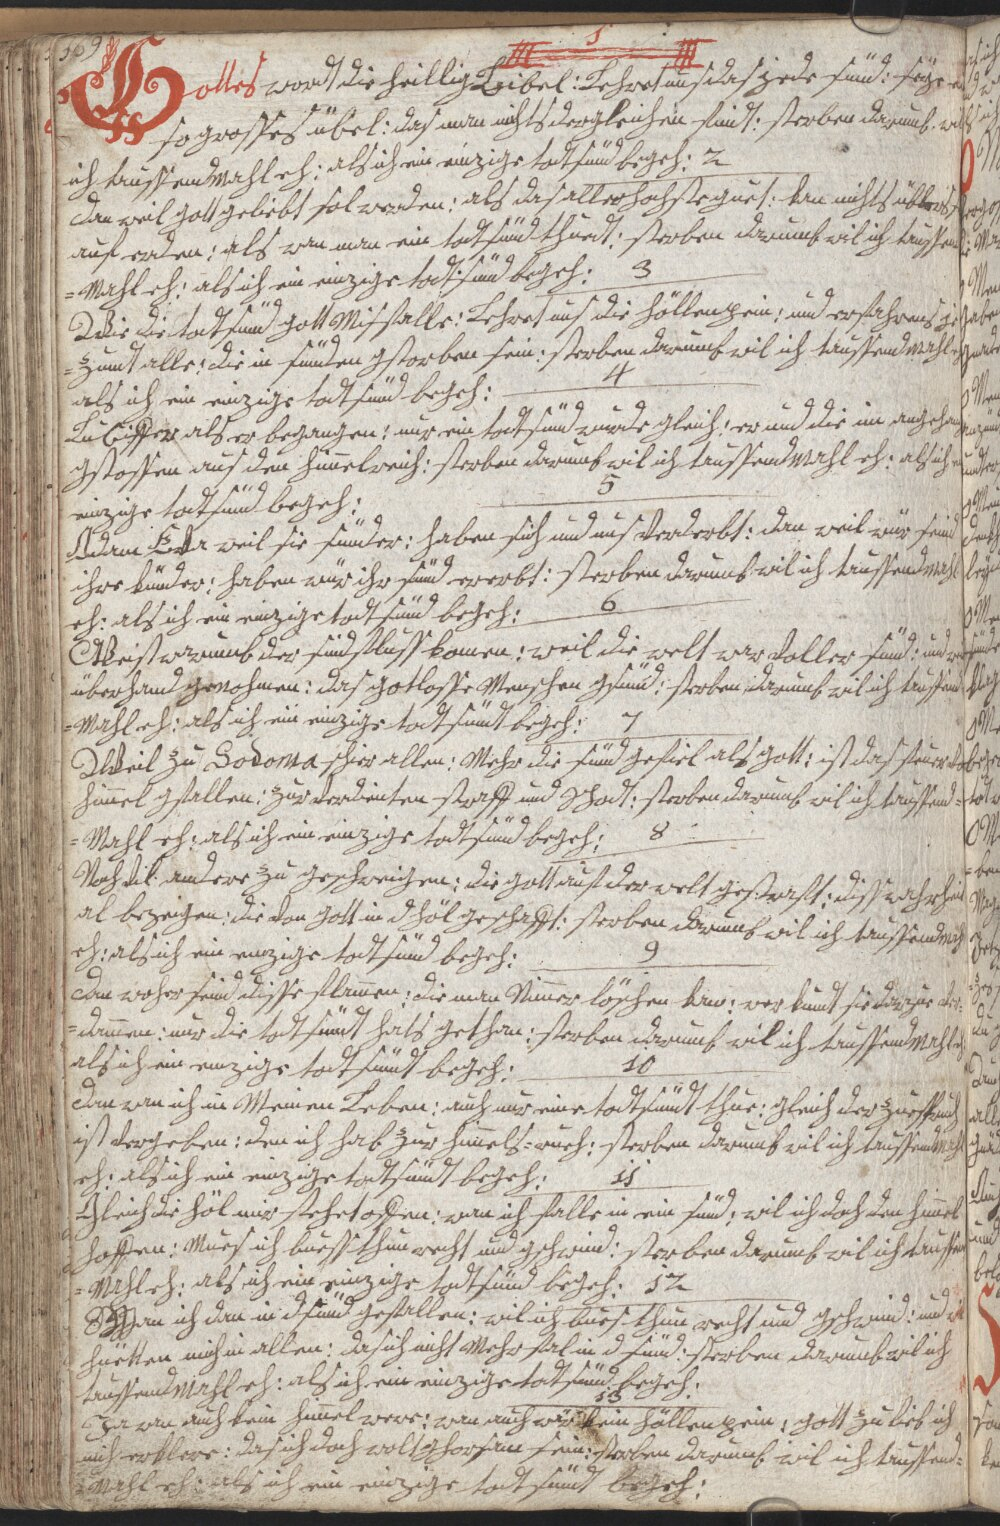 109
1
Gottes wordt die heillig Bibel: Lehret uns das jede sünd: seÿe ein
so grosses übel: das man nichts dergleichen findt: sterben darumb wil
ich taussend Mahl eh: als ich ein einzige todt sünd begeh: 2
dan weil gott geliebt sol werden: als das aller höchste guet: kan nichts üblers
auf erden: als wan man ein todt sünd thuedt: sterben darumb wil ich taussend
=Mahl eh: als ich ein einzige todt sünd begeh: 3
Wie die todt sünd gott Missfalle: Lehret uns die höllen pein: und erfahrens je
=zundt alle: die in sünden gstorben sein: sterben darumb wil ich taussend Mahl eh
als ich ein einzige todt sünd begeh: 4
Lucifer als er begangen: nur ein todt sünd wurde gleich: er und die im angehangen
gstossen aus den himelreich: sterben darumb wil ich taussend Mahl eh: als ich ein
einzige todt sünd begeh: 5
Adam Eva weil sie sünder: haben sich und uns verderbt: dan weil wür seind
ihre kinder: haben wür ihr sünd ererbt: sterben darumb wil ich taussend Mahl
eh: als ich ein einzige todt sünd begeh: 6
Weist warumb der sündfluss komen: weil die welt war voller sünd: und
überhand genohmen: das gotlosse Menschen gsünd: sterben darumb wil ich taussend
=Mahl eh: als ich ein einzige todt sündt begeh: 7
Weil zu Sodoma schier allen: Mehr die sünd gefiel als gott: ist das feuer vo
himel gfallen: zur verdienten straff und Spodt: sterben darumb wil ich taussend=
=Mahl eh: als ich ein einzige todt sünd begeh: 8
Noch vil andere zu geschweigen: die gott auf der welt gestraft: diss wahrheit
al bezeigen: die von gott in d höl geschafft: sterben darumb wil ich taussend Mahl
eh: als ich ein einzige todt sünd begeh: 9
dan woher seind disse flamen: die man Nimer löschen kan: wer kundt sie darzue ver=
=damen: nur die todt sündt hats gethan: sterben darumb wil ich taussend Mahl eh
als ich ein einzige todt sündt begeh: 10
dan wan ich in Meinen Leben: auch nur eine todt sündt thue: gleich der zuespruch
ist vergeben: den ich hab zur himels=rueh: sterben darumb wil ich taussend Mahl
eh: als ich ein einzige todt sündt begeh: 11
Gleich die höl mir stehet offen: wan ich falle in ein sünd: wil ich doch den himel
hoffen: Mues ich buess thun recht und gschwind: sterben darumb wil ich taussend
=Mahl eh: als ich ein einzige todt sünd begeh: 12
Wan ich dan in d sünd gefallen: wil ich buess thun recht und geschwind: und
hüetten mich in allen: das ich nicht Mehr fal in d sünd: sterben darumb wil ich
taussend Mahl eh: als ich ein einzige todt sünd begeh:
13
Ja wan auch kein himel were: wan auch wär kein höllen pein: gott zu lieb ich
mich erklere: das ich doch wolt ghorsam sein: sterben darumb wil ich taussend=
=Mahl eh: als ich ein einzige todt sündt begeh: